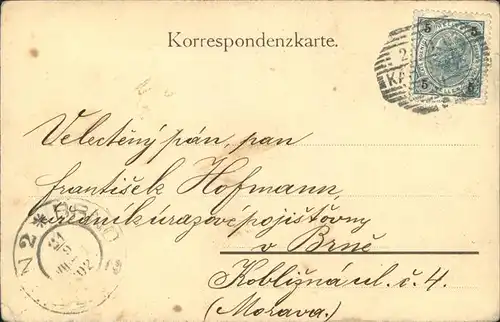 Korrespondenzkarte.
5 5
5 5
2
KA
Velectěný pán, pan
františek Hofmann,
úředník úrazové pojišťovny
v Brně
Kobližná ul. č. 4.
(Morava.)
BRNO
02